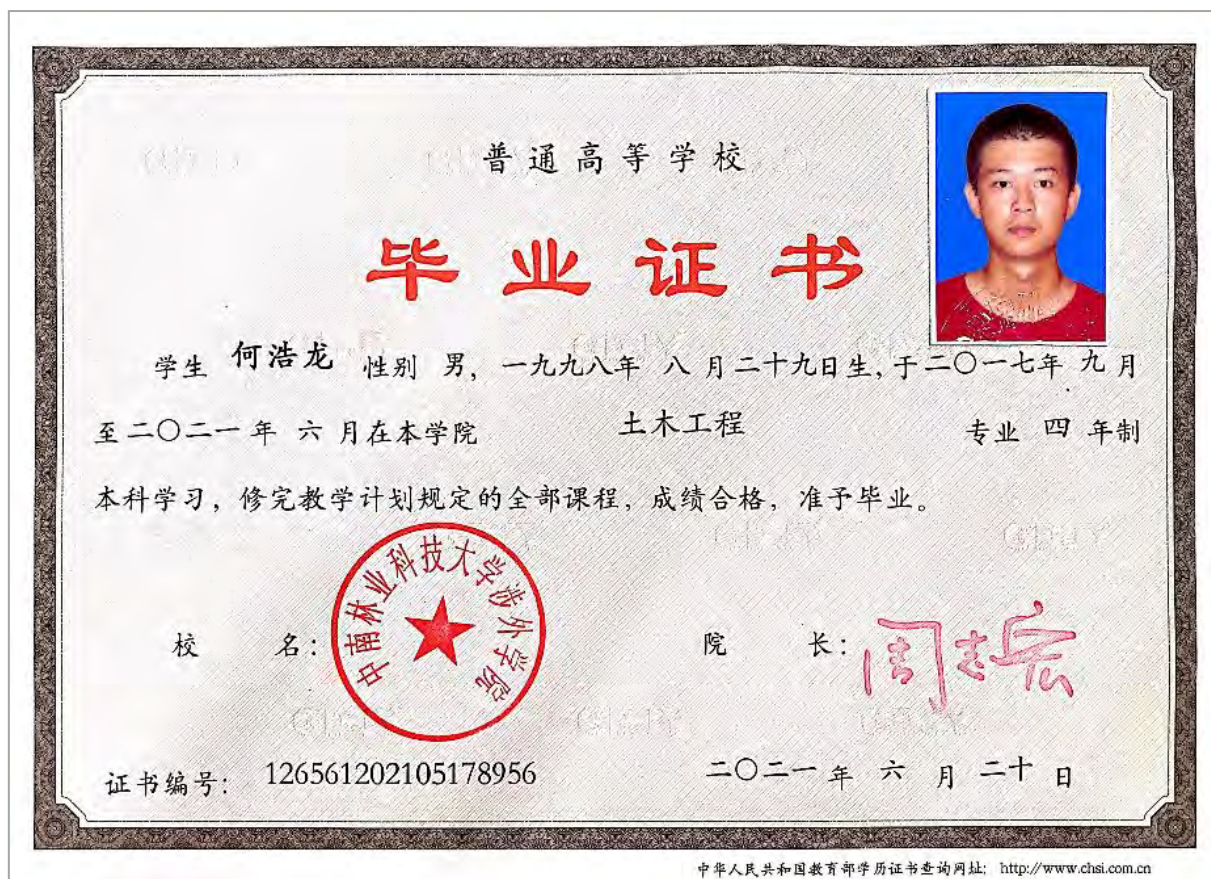 普通高等学校
毕业证书
学生 何浩龙 性别 男，一九九八年 八 月二十九日生，于二〇一七年 九 月
至二〇二一年 六 月在本学院 土木工程 专业 四 年制
本科学习，修完教学计划规定的全部课程，成绩合格，准予毕业。
中南林业科技大学涉外学院
校 名： 院 长：周志宏
证书编号：126561202105178956 二〇二一年 六 月 二十 日
中华人民共和国教育部学历证书查询网址：http://www.chsi.com.cn